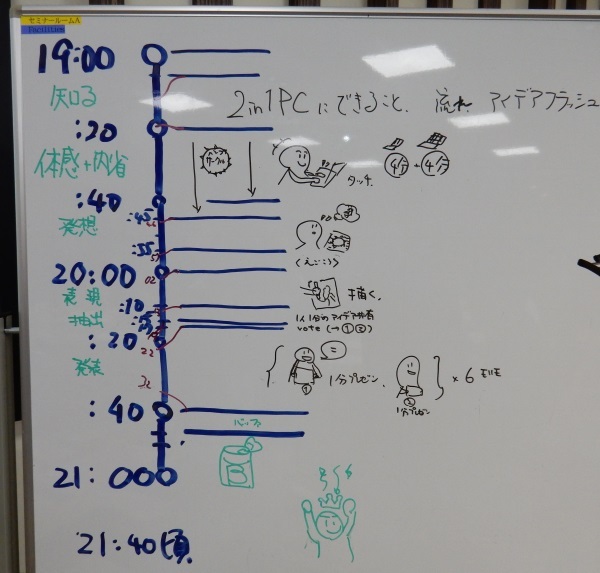 セミナールームA
Facilities
19:00
知る
2in1PCにできること、流れ、アイデアフラッシュ
:20
体感+内省
タッチ
4分+4分
:40
:45
発想
:55
57
(えごころ)
20:00
02
表現
:10
手描く。
抽出
:15
1人1分のアイデア共有
vote(→①②)
:20
22
発表
① 1分プレゼン、
② 1分プレゼン
×6
32
:40
バッファ
21:000
21:40頃